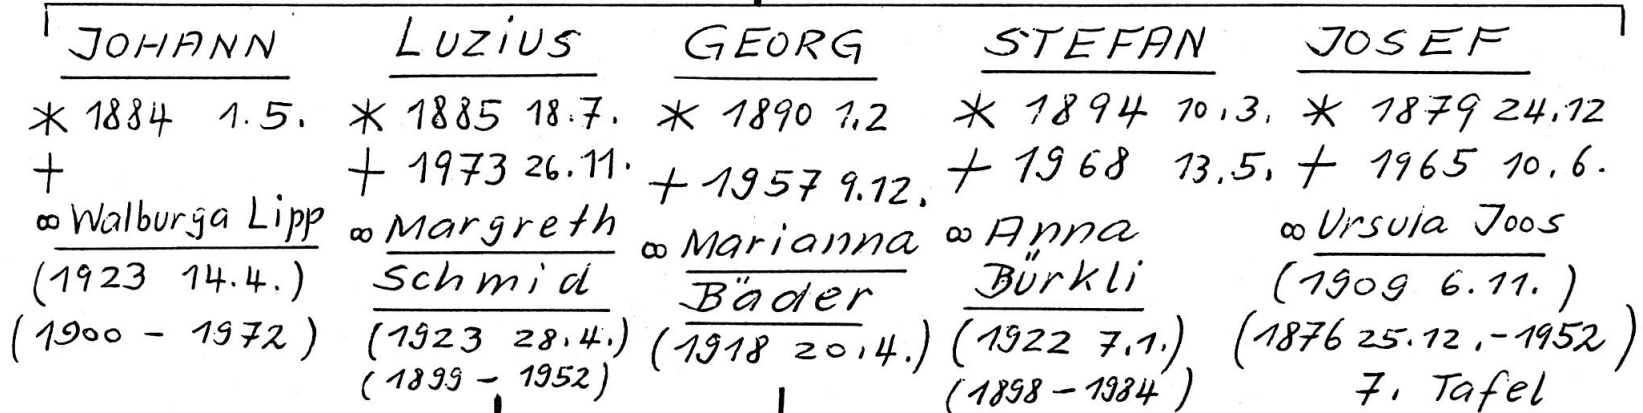 JOHANN
* 1884 1.5.
+
∞ Walburga Lipp
(1923 14.4.)
(1900 - 1972)
LUZIUS
* 1885 18.7.
+ 1973 26.11.
∞ Margreth
Schmid
(1923 28.4.)
(1899 - 1952)
GEORG
* 1890 1.2
+ 1957 9.12.
∞ Marianna
Bäder
(1918 20.4.)
STEFAN
* 1894 10.3.
+ 1968 13.5.
∞ Anna
Bürkli
(1922 7.1.)
(1898 - 1984)
JOSEF
* 1879 24.12
+ 1965 10.6.
∞ Ursula Joos
(1909 6.11.)
(1876 25.12. - 1952)
7. Tafel